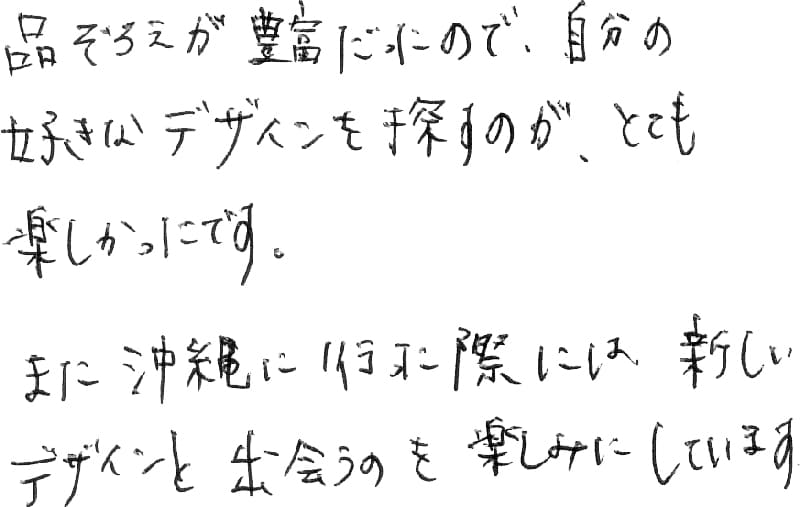 品ぞろえが豊富だったので、自分の
好きなデザインを探すのが、とても
楽しかったです。
また沖縄に行った際には新しい
デザインと出会うのを楽しみにしています